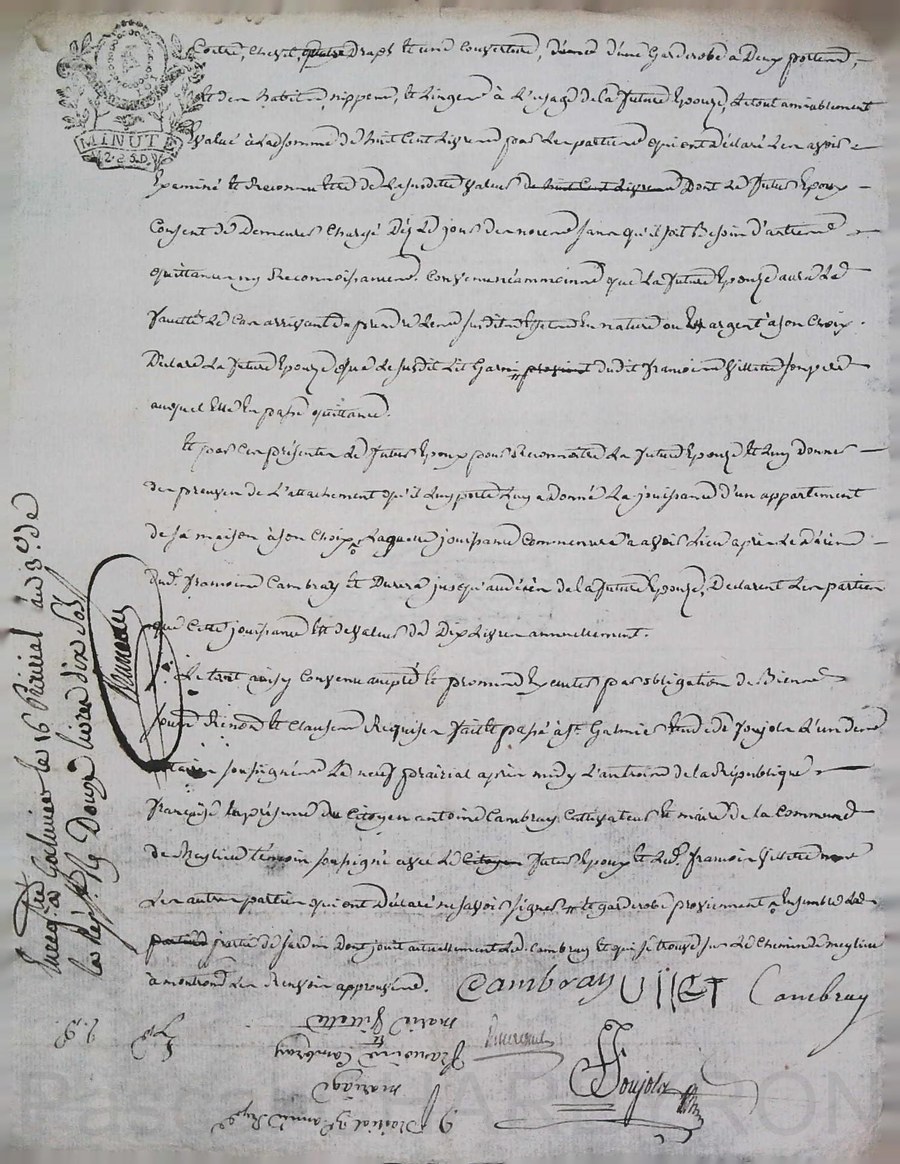 MINUTE
2. S. D.
Coetre, chevet, quatre draps et une couverture, d'une Garderobe a Deux portes,
et des habits nippes, et Linges à L'usage de la future Epouze, le tout amiablement
Evalué à La somme de huit Cent Livres par Les parties qui ont déclaré L'avoir
Examiné et Reconnu Etre de La susditte valeur de huit Cent Livres Dont Le futur Epoux
Consent de Demeurer Chargé Dès Le jour des noces sans qu'il soit Besoin d'autre
quittance ny Reconnoissance. Convenu neammoins que La future Epouze aura La
faculté Le Cas arrivant de prendre Les susdits Effets En nature ou En argent à son Choix.
Déclare La future Epouze que Le susdit Lit Garni provient dudit françois Villette son père
auquel Elle En passe quittance.
Et par Ces présentes Le futur Epoux pour Reconnoitre La future Epouze Et Luy donner
des preuves de L'attachement qu'il Luy porte Luy a Donné La jouissance d'un appartement
de sa maison à son Choix, Laquelle jouissance Commencera a avoir Lieu après Le décès
dud. françois Cambray Et Durera jusqu'au décès de la future Epouze, Declarent Les parties
que Cette jouissance Est de valeur de Dix Livres annuellement.
Le tout ainsy Convenu accepté Et promis Executer par obligation de Biens
Renon. Et Clauses Requises fait Et passé à St. Galmier Etude de Soujola L'un des
notaires soussignés Le neuf prairial après midy L'an trois de la République
française En présence du Citoyen antoine Cambray Cultivateur Et maire de la Commune
de Meylieu témoin soussigné avec Le Citoyen futur Epoux Et Led. françois Villette
Les autres parties qui ont déclaré ne savoir signer Et garderobe proviennent Ensemble La
partie partie de Jardin dont jouit actuellement Led. Cambray Et qui se trouve sur Le Chemin de meylieu
à montrond Les Renvoir approuvés.
Cambray Villet Cambray
Soujola
Enreg. à Galmier le 16 Prairial an 3e. de
la Rép. Douze livres dix sols
9 Prairial 3e année Rep.
mariage
françois Cambray
Et
marie Villette